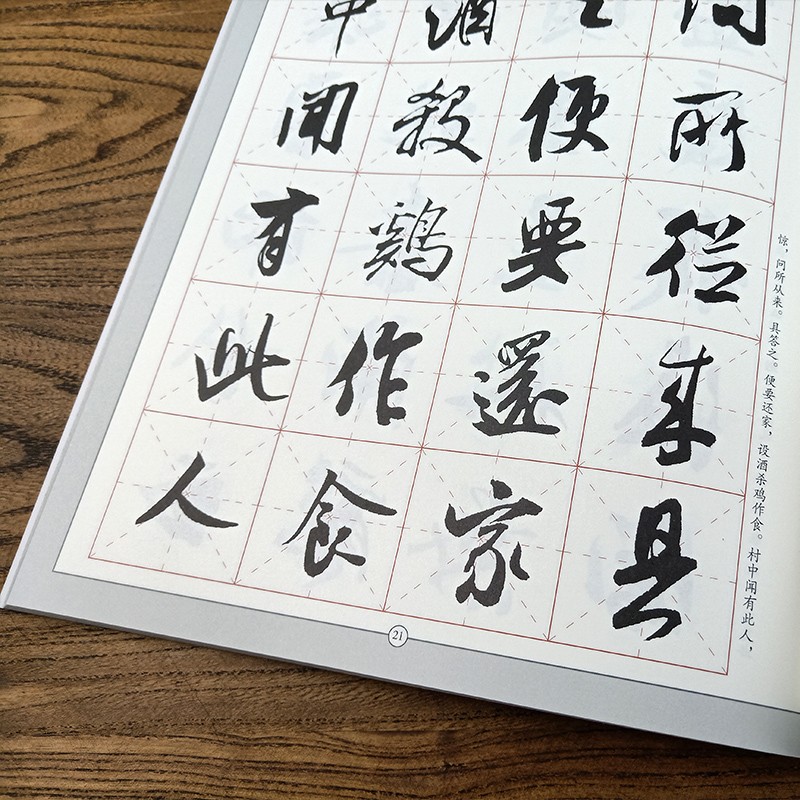 惊，问所从来。具答之。便要还家，设酒杀鸡作食。村中闻有此人，
問所從来具
之便要還家
酒殺鷄作食
中聞有此人
21